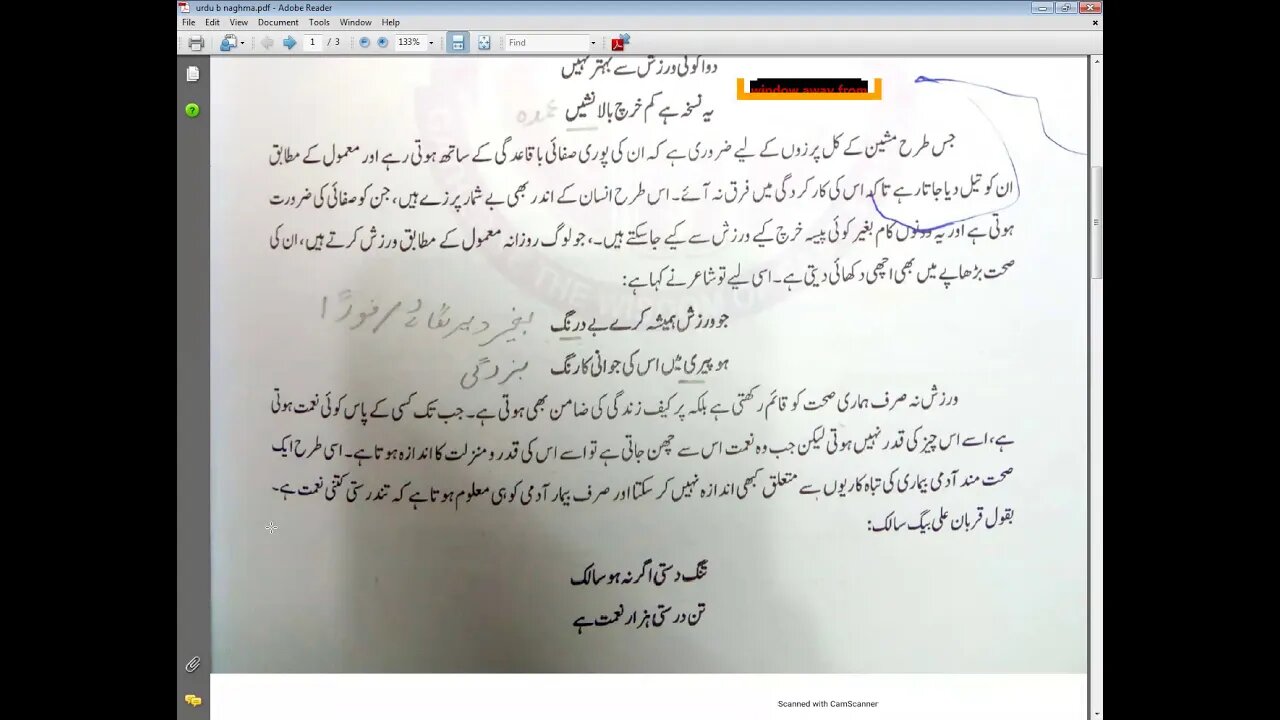 urdu b naghma.pdf - Adobe Reader
File Edit View Document Tools Window Help
1 / 3 133% Find
دوا کوئی ورزش سے بہتر نہیں
window away from
یہ نسخہ ہے کم خرچ بالا نشیں عمدہ
جس طرح مشین کے کل پرزوں کے لیے ضروری ہے کہ ان کی پوری صفائی باقاعدگی کے ساتھ ہوتی رہے اور معمول کے مطابق
ان کو تیل دیا جاتا رہے تاکہ اس کی کارکردگی میں فرق نہ آئے۔ اس طرح انسان کے اندر بھی بے شمار پرزے ہیں، جن کو صفائی کی ضرورت
ہوتی ہے اور یہ دونوں کام بغیر کوئی پیسہ خرچ کیے ورزش سے کیے جا سکتے ہیں۔، جو لوگ روزانہ معمول کے مطابق ورزش کرتے ہیں، ان کی
صحت بڑھاپے میں بھی اچھی دکھائی دیتی ہے۔ اسی لیے تو شاعر نے کہا ہے:
جو ورزش ہمیشہ کرے بے درنگ بغیر دیر لگائے/فوراً
ہو پیری میں اس کی جوانی کا رنگ
ورزش نہ صرف ہماری صحت کو قائم رکھتی ہے بلکہ پر کیف زندگی کی ضامن بھی ہوتی ہے۔ جب تک کسی کے پاس کوئی نعمت ہوتی
ہے، اسے اس چیز کی قدر نہیں ہوتی لیکن جب وہ نعمت اس سے چھن جاتی ہے تو اسے اس کی قدر و منزلت کا اندازہ ہوتا ہے۔ اسی طرح ایک
صحت مند آدمی بیماری کی تباہ کاریوں سے متعلق کبھی اندازہ نہیں کر سکتا اور صرف بیمار آدمی کو ہی معلوم ہوتا ہے کہ تندرستی کتنی نعمت ہے۔
بقول قربان علی بیگ سالک:
تنگ دستی اگر نہ ہو سالک
تن درستی ہزار نعمت ہے
Scanned with CamScanner